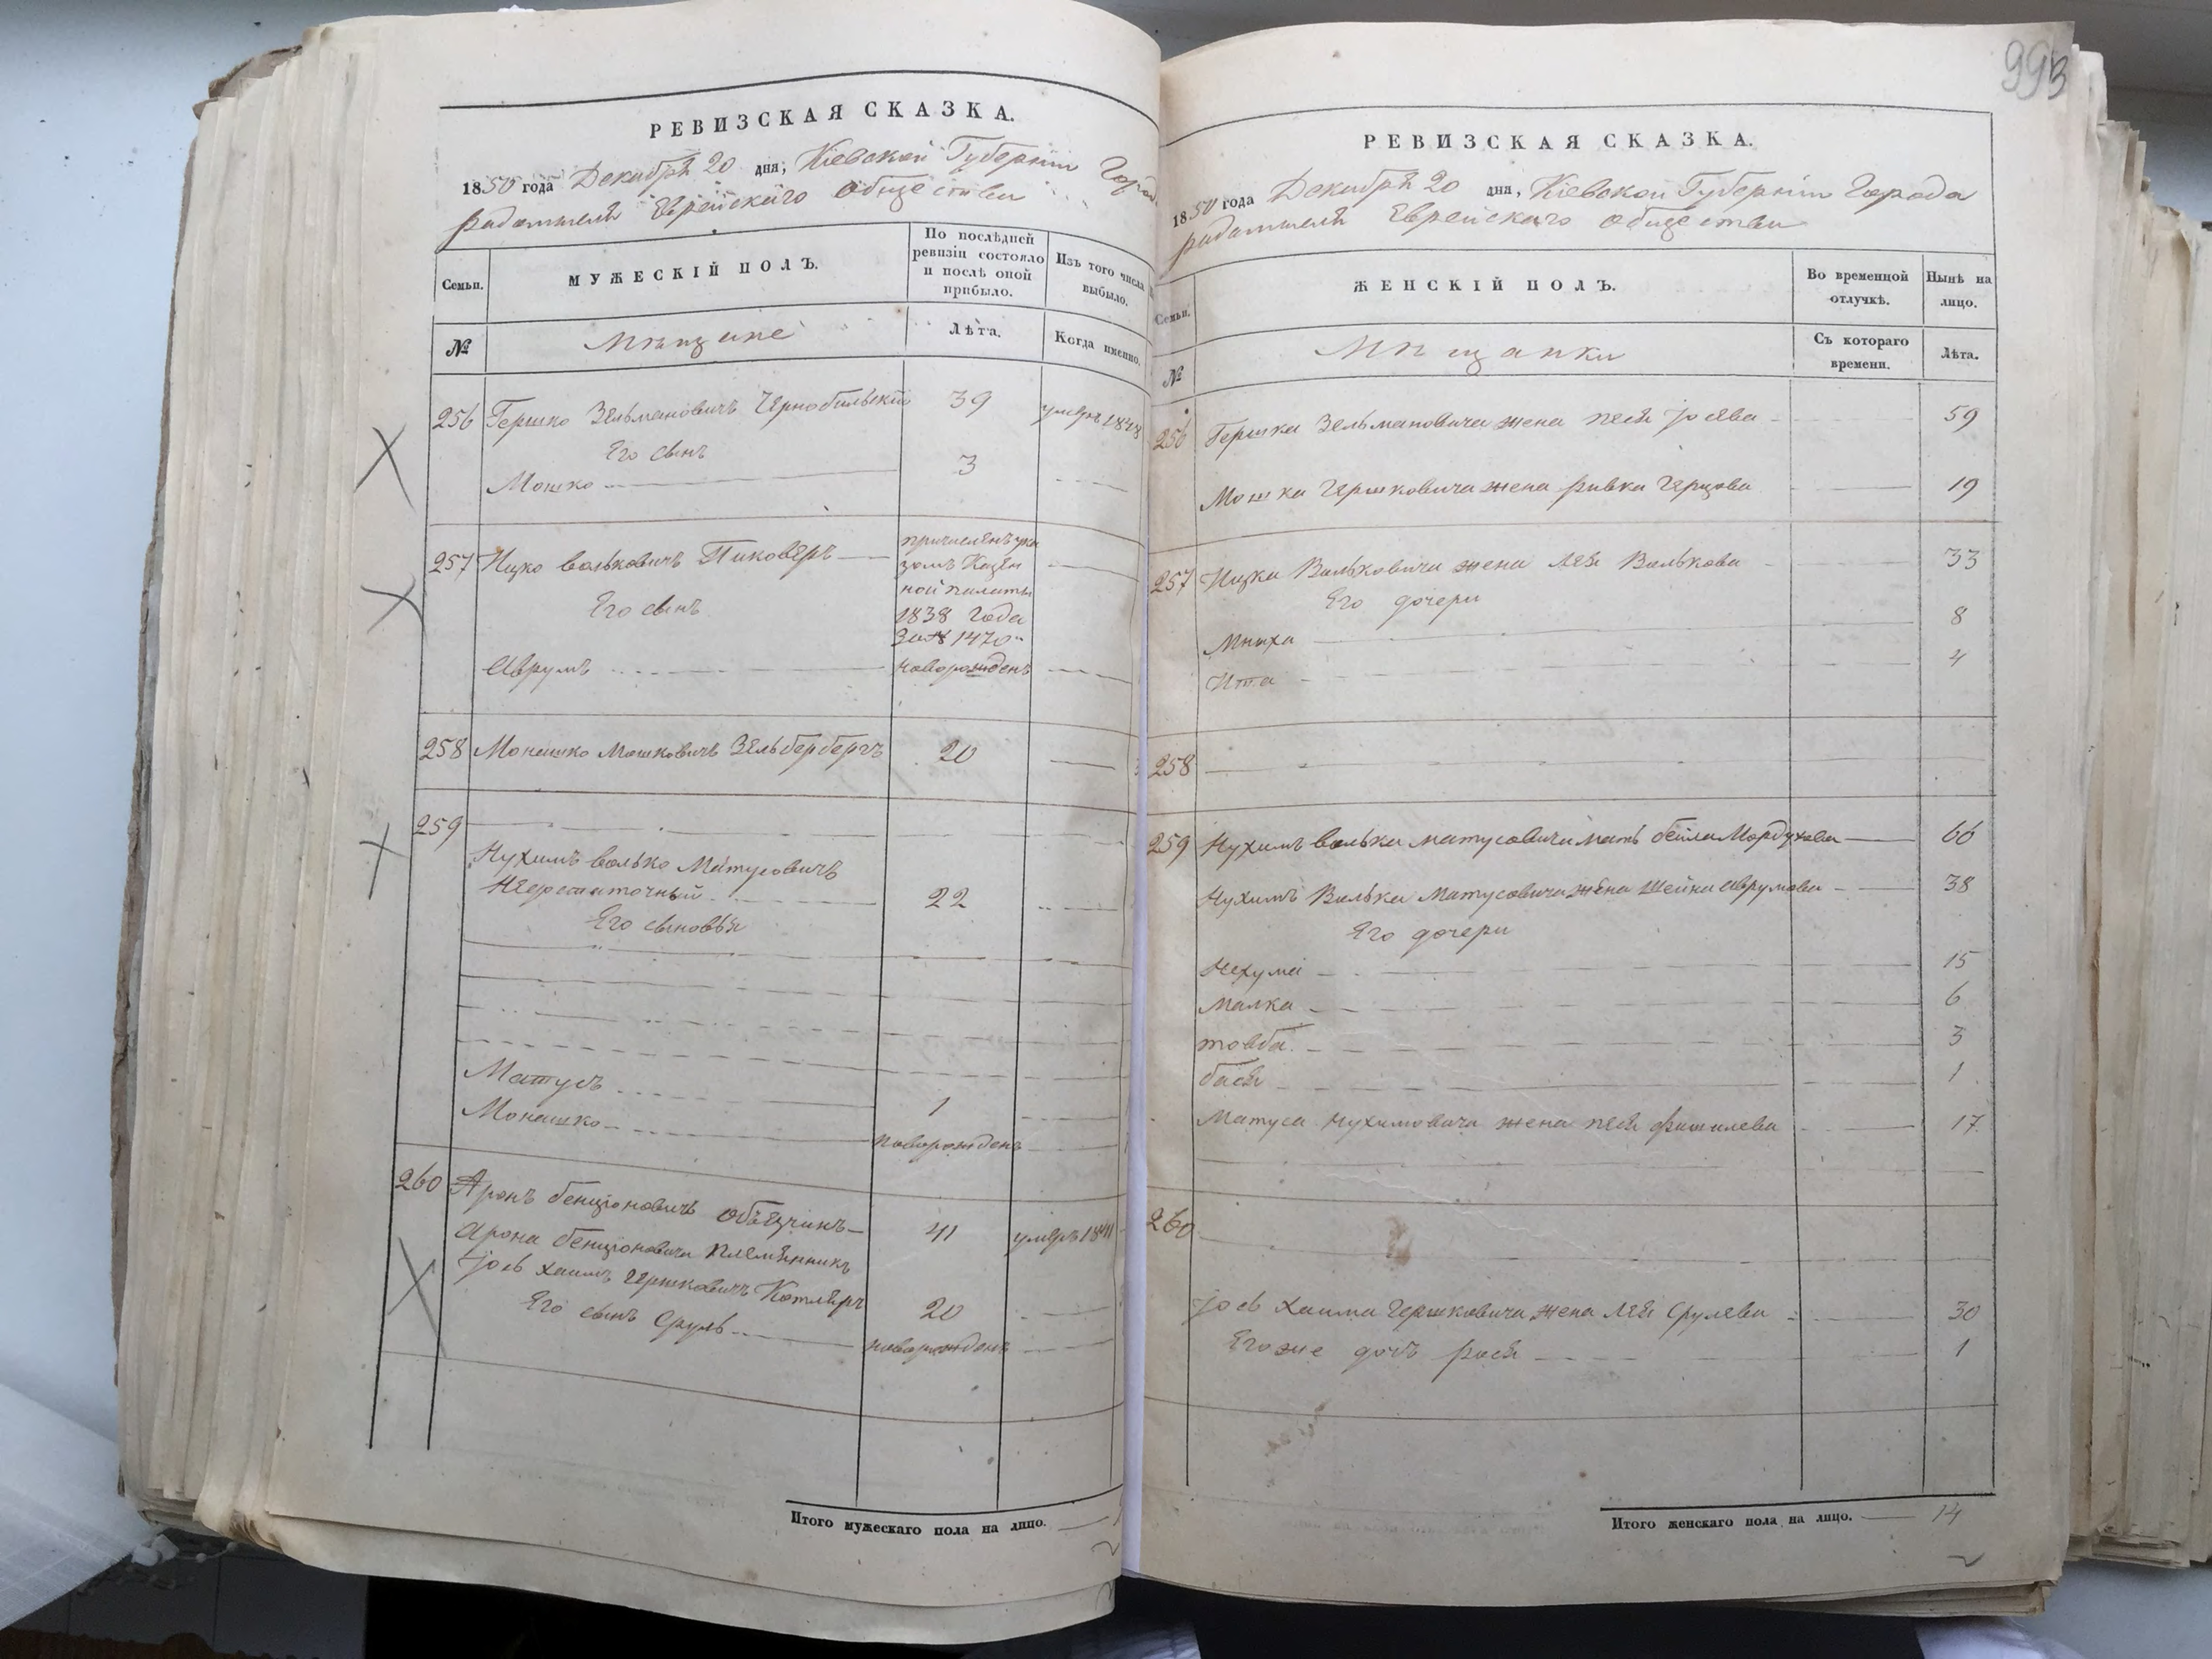 РЕВИЗСКАЯ СКАЗКА.
1850 года Декабря 20 дня, Кіевской Губерніи Горо
Радомысля Еврейскаго общества
Семьи.
МУЖЕСКІЙ ПОЛЪ.
По послѣдней ревизіи состояло и послѣ оной прибыло.
Изъ того числа выбыло.
№
Мѣщане
Лѣта.
Когда именно.
256 Гершко Зельмановичъ Чернобильскій 39 умеръ 1848
Его сынъ
Мошко 3
257 Ицко Вольковичъ Пиковеръ причисленъ ука
зомъ Казен
Его сынъ
ной палаты
1838 года
за № 1470
Аврумъ новорожденъ
258 Монашко Мошковичъ Зельбербергъ 20
259
Нухимъ Волько Матусовичъ
Недостаточный 22
Его сыновья
Матусъ 1
Монашко новорожденъ
260 Аронъ Бенціоновичъ Объезчикъ 41 умеръ 1841
Арона Бенціоновича племянникъ
Іось Хаимъ Гершковичъ Котляръ 20
Его сынъ Сруль новорожденъ
Итого мужескаго пола на лицо.
993
РЕВИЗСКАЯ СКАЗКА.
1850 года Декабря 20 дня, Кіевской Губерніи Города
Радомысля Еврейскаго общества
Семьи.
ЖЕНСКІЙ ПОЛЪ.
Во временной отлучкѣ.
Нынѣ на лицо.
№
Мѣщанки
Съ котораго времени.
Лѣта.
256 Гершка Зельмановича жена Песя Іосева 59
Мошка Гершковича жена Ривка Герцова 19
257 Ицка Вольковича жена Лея Волькова 33
Его дочери
Мниха 8
Ита 4
258
259 Нухимъ Волька Матусовича мать Бейла Мордухова 66
Нухимъ Волька Матусовича жена Шейна Аврумова 38
Его дочери
Нехума 15
Малка 6
Товба 3
Бася 1
Матуса Нухимовича жена Песя Фишилева 17
260
Іось Хаима Гершковича жена Лея Срулева 30
Его же дочь Рося 1
Итого женскаго пола на лицо. 14